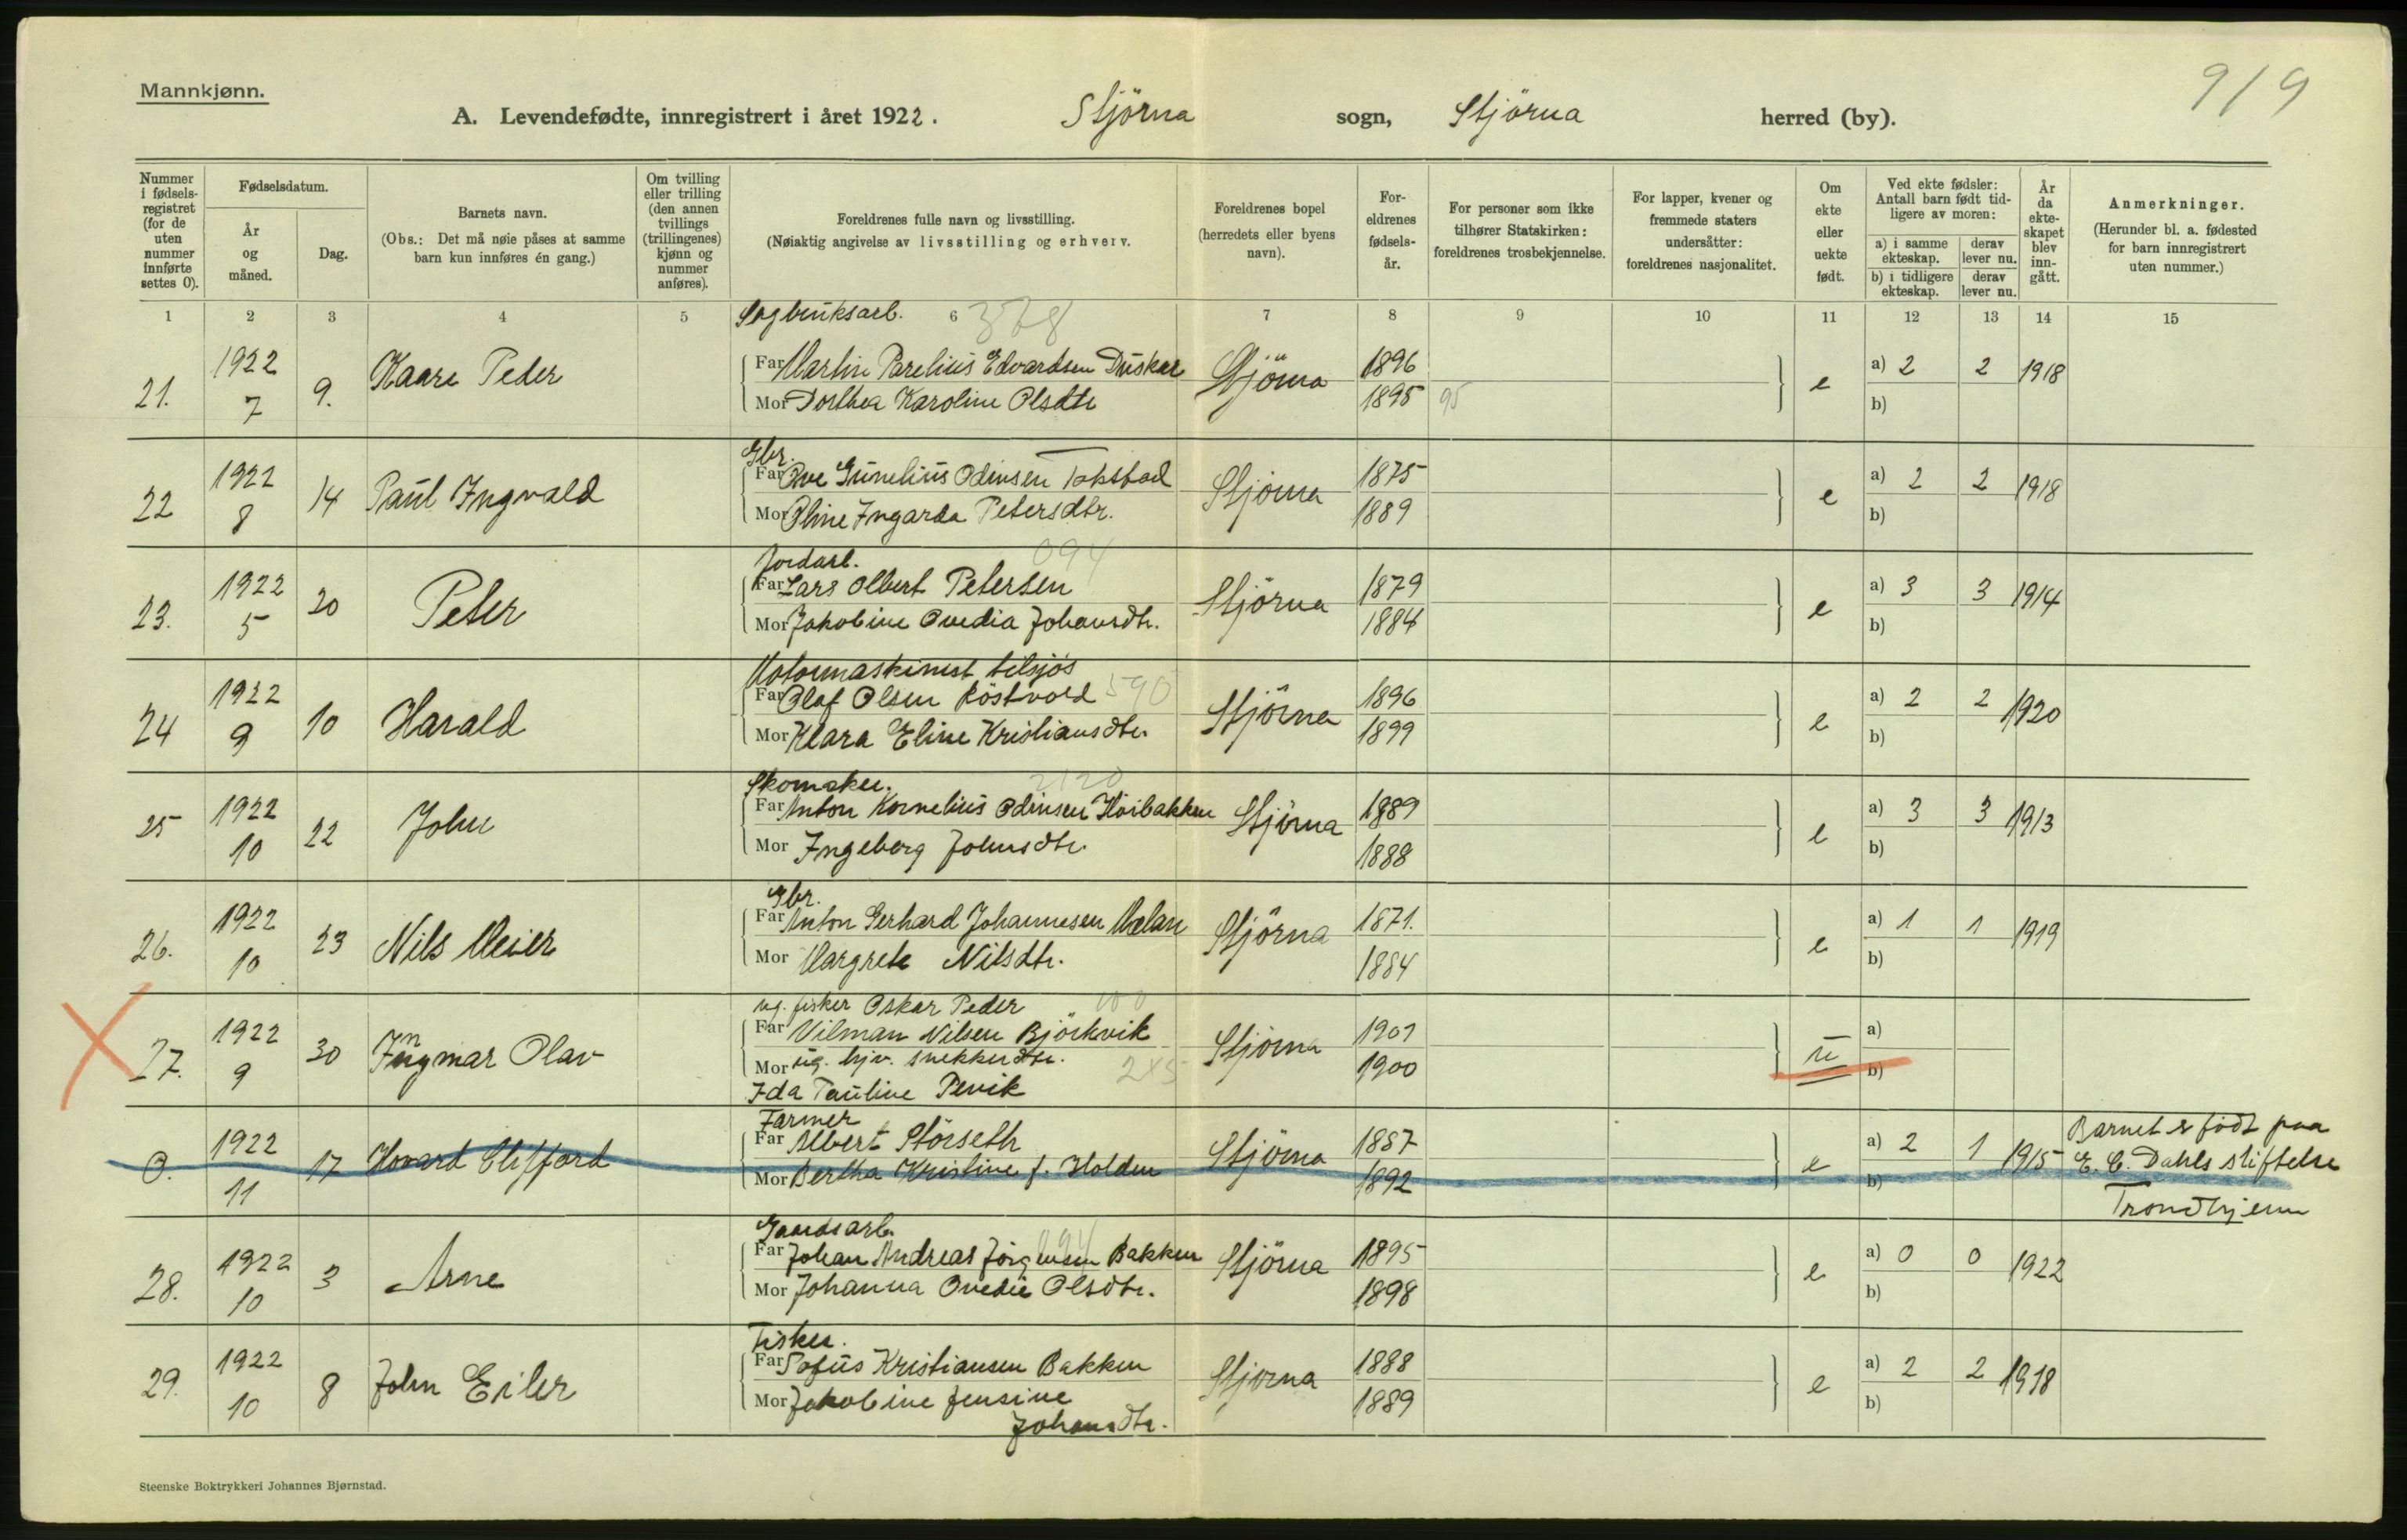 Mannkjønn.
919
A. Levendefødte, innregistrert i året 1922. Stjörna sogn, Stjörna herred (by).
Nummer i fødselsregistret (for de uten nummer innførte settes 0).
Fødselsdatum.
År og måned.
Dag.
Barnets navn.
(Obs.: Det må nøie påses at samme barn kun innføres én gang.)
Om tvilling eller trilling (den annen tvillings (trillingenes) kjønn og nummer anføres).
Foreldrenes fulle navn og livsstilling.
(Nøiaktig angivelse av livsstilling og erhverv.
Foreldrenes bopel (herredets eller byens navn).
Foreldrenes fødselsår.
For personer som ikke tilhører Statskirken: foreldrenes trosbekjennelse.
For lapper, kvener og fremmede staters undersåtter: foreldrenes nasjonalitet.
Om ekte eller uekte født.
Ved ekte fødsler: Antall barn født tidligere av moren:
a) i samme ekteskap. derav lever nu.
b) i tidligere ekteskap. derav lever nu.
År da ekteskapet blev inngått.
Anmerkninger.
(Herunder bl. a. fødested for barn innregistrert uten nummer.)
1 2 3 4 5 6 7 8 9 10 11 12 13 14 15
Sagbruksarb. 378
21. 1922 7 9. Kaare Peder
Far Martin Parelius Edvardsen Duskar Stjörna 1896 e a) 2 2 1918
Mor Dorthea Karoline Olsdtr 1895 95 b)
Gbr.
22 1922 8 14 Paul Ingvald
Far Ove Gunelius Odinsen Takstad Stjörna 1875 e a) 2 2 1918
Mor Oline Ingarda Petersdtr. 1889 b)
Jordarb. 094
23. 1922 5 20 Peter
Far Lars Olbert Petersen Stjörna 1879 e a) 3 3 1914
Mor Jakobine Ovedia Johansdtr. 1884 b)
Motormaskinist tilsjös
24 1922 9 10 Harald
Far Olaf Olsen Röstvold 590 Stjörna 1896 e a) 2 2 1920
Mor Klara Eline Kristiansdtr. 1899 b)
Skomaker. 2120
25 1922 10 22 John
Far Anton Kornelius Odinsen Höibakken Stjörna 1889 e a) 3 3 1913
Mor Ingeborg Johnsdtr. 1888 b)
Gbr.
26. 1922 10 23 Nils Meier
Far Anton Gerhard Johannesen Mælan Stjörna 1871. e a) 1 1 1919
Mor Margrete Nilsdtr. 1884 b)
ug. fisker Oskar Peder
27. 1922 9 30 Ingmar Olav
Far Vilman Nilsen Björkvik Stjörna 1901 u a)
Mor ug. hjv. snekkerdtr. 245 1900 b)
Ida Pauline Pevik
Farmer
0. 1922 11 17 Howard Clifford
Far Albert Störseth Stjörna 1887 e a) 2 1 1915 Barnet er födt paa E. C. Dahls stiftelse Trondhjem
Mor Bertha Kristine f. Holden 1892 b)
Gaardsarb. 094
28. 1922 10 3 Arne
Far Johan Andreas Jörgensen Bakken Stjörna 1895 e a) 0 0 1922
Mor Johanna Ovedie Olsdtr. 1898 b)
Fisker.
29. 1922 10 8 John Eiler
Far Sofus Kristiansen Bakken Stjörna 1888 e a) 2 2 1918
Mor Jakobine Jensine Johansdtr. 1889 b)
Steenske Boktrykkeri Johannes Bjørnstad.